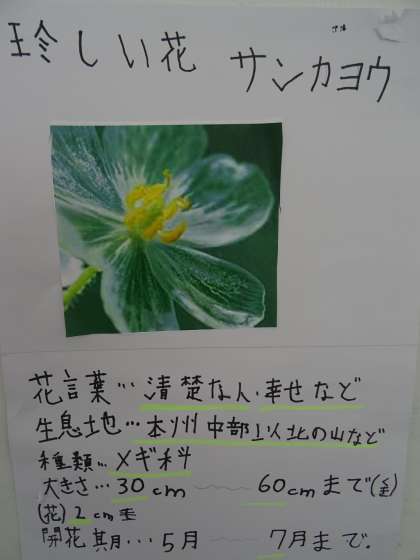 珍しい花 サンカヨウ
花言葉…清楚な人、幸せなど
生息地…本州中部以北の山など
種類…メギ科
大きさ…30cm 〜 60cmまで(全)
(花)2cm
開花期…5月 7月まで.